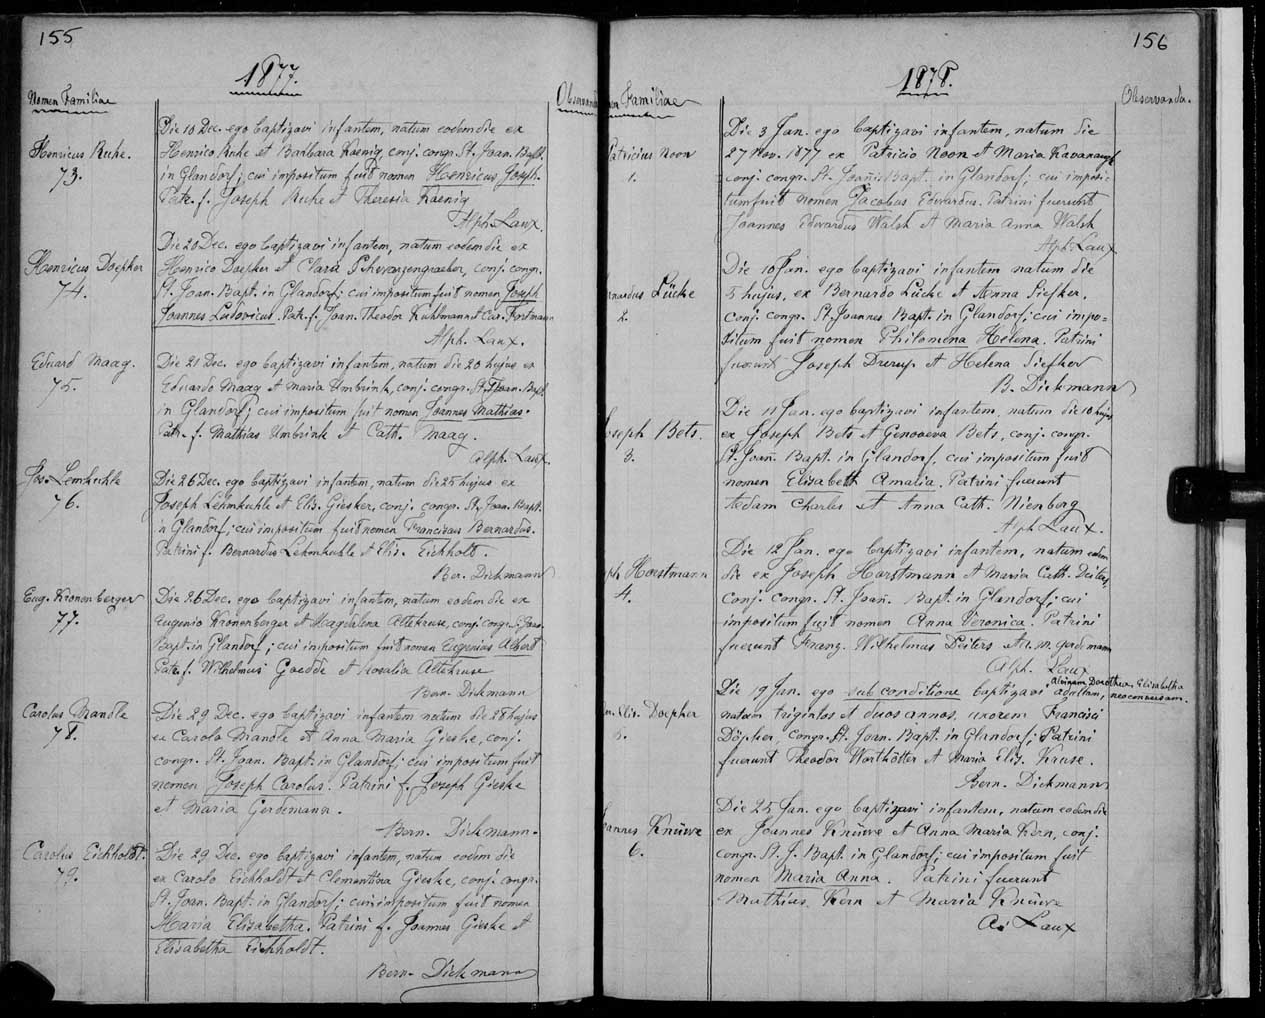 155
1877.
Nomen Familiae
Observanda
Henricus Ruhe.
73.
Die 10 Dec. ego baptizavi infantem, natum eodem die ex
Henrico Ruhe et Barbara Koenig, conj. congr. St. Joan. Bapt.
in Glandorf; cui impositum fuit nomen Henricus Joseph.
Patr. f. Joseph Ruhe et Theresia Koenig
Alph. Laux.
Henricus Doepker
74.
Die 20 Dec. ego baptizavi infantem, natum eodem die ex
Henrico Doepker et Clara Schwarzengraeber, conj. congr.
St. Joan. Bapt. in Glandorf; cui impositum fuit nomen Joseph
Joannes Ludovicus. Patr. f. Joan. Theodor Kuhlmann et Car. Fortmann
Alph. Laux.
Eduard Maag.
75.
Die 21 Dec. ego baptizavi infantem, natum die 20 hujus ex
Eduardo Maag et Maria Umbrink, conj. congr. St. Joan. Bapt.
in Glandorf; cui impositum fuit nomen Joannes Mathias.
Patr. f. Mathias Umbrink et Cath. Maag.
Alph. Laux.
Jos. Lemkuhle
76.
Die 26 Dec. ego baptizavi infantem, natum die 25 hujus ex
Joseph Lehmkuhle et Elis. Giesker, conj. congr. St. Joan. Bapt.
in Glandorf; cui impositum fuit nomen Franciscus Bernardus.
Patrini f. Bernardus Lehmkuhle et Elis. Eichholt.
Ber. Dickmann
Eug. Kronenberger
77.
Die 26 Dec. ego baptizavi infantem, natum eodem die ex
Eugenio Kronenberger et Magdalena Altekruse, conj. congr. S. Joan.
Bapt. in Glandorf; cui impositum fuit nomen Eugenius Albert
Patr. f. Wilhelmus Goedde et Rosalia Altekruse
Bern. Dickmann
Carolus Mandle
78.
Die 29 Dec. ego baptizavi infantem natum die 28 hujus
ex Carolo Mandle et Anna Maria Gieske, conj.
congr. St. Joan. Bapt. in Glandorf; cui impositum fuit
nomen Joseph Carolus. Patrini f. Joseph Gieske
et Maria Gerdemann.
Bern. Dickmann.
Carolus Eichholdt.
79.
Die 29 Dec. ego baptizavi infantem, natum eodem die
ex Carolo Eichholdt et Clementina Gieske, conj. congr.
St. Joan. Bapt. in Glandorf; cui impositum fuit nomen
Maria Elisabetha. Patrini f. Joannes Gieske et
Elisabetha Eichholdt.
Bern. Dickmann
156
1878.
Familiae
Observanda.
Patricius Noon
1.
Die 3 Jan. ego baptizavi infantem, natum die
27 Nov. 1877 ex Patricio Noon et Maria Kavanaugh
conj. congr. St. Joañ. Bapt. in Glandorf; cui imposi-
tum fuit nomen Jacobus Edwardus. Patrini fuerunt
Joannes Edwardus Walsh et Maria Anna Walsh
Alph. Laux
nardus Lücke
2.
Die 10 Jan. ego baptizavi infantem natum die
5 hujus, ex Bernardo Lücke et Anna Siefker,
conj. congr. St. Joannes Bapt. in Glandorf; cui impo=
situm fuit nomen Philomena Helena. Patrini
fuerunt Joseph Drerup et Helena Siefker
B. Dickmann
oseph Bets.
3.
Die 11 Jan. ego baptizavi infantem, natum die 10 hujus
ex Joseph Bets et Genoveva Bets, conj. congr.
St. Joañ. Bapt. in Glandorf, cui impositum fuit
nomen Elisabeth Amalia. Patrini fuerunt
Adam Charles et Anna Cath. Nienberg
Alph Laux.
ph Horstmann
4.
Die 12 Jan. ego baptizavi infantem, natum eodem
die ex Joseph Horstmann et Maria Cath. Deiters,
conj. congr. St. Joañ. Bapt. in Glandorf; cui
impositum fuit nomen Anna Veronica. Patrini
fuerunt Franz. Wilhelmus Deiters et A. M. Gerdemann
Alph. Laux
Elis. Doepker
5.
Alvinam Dorothea Elisabetha
Die 19 Jan. ego sub conditione baptizavi adultam, neoconversam.
natam triginta et duos annos, uxorem Francisci
Döpker, congr. St. Joan. Bapt. in Glandorf; Patrini
fuerunt Theodor Worthötter et Maria Elis. Kruse.
Bern. Dickmann
oannes Knüwe
6.
Die 25 Jan. ego baptizavi infantem, natum eodem die
ex Joannes Knüwe et Anna Maria Kern, conj.
congr. St. J. Bapt. in Glandorf; cui impositum fuit
nomen Maria Anna. Patrini fuerunt
Mathias Kern et Maria Knüwe
A. Laux